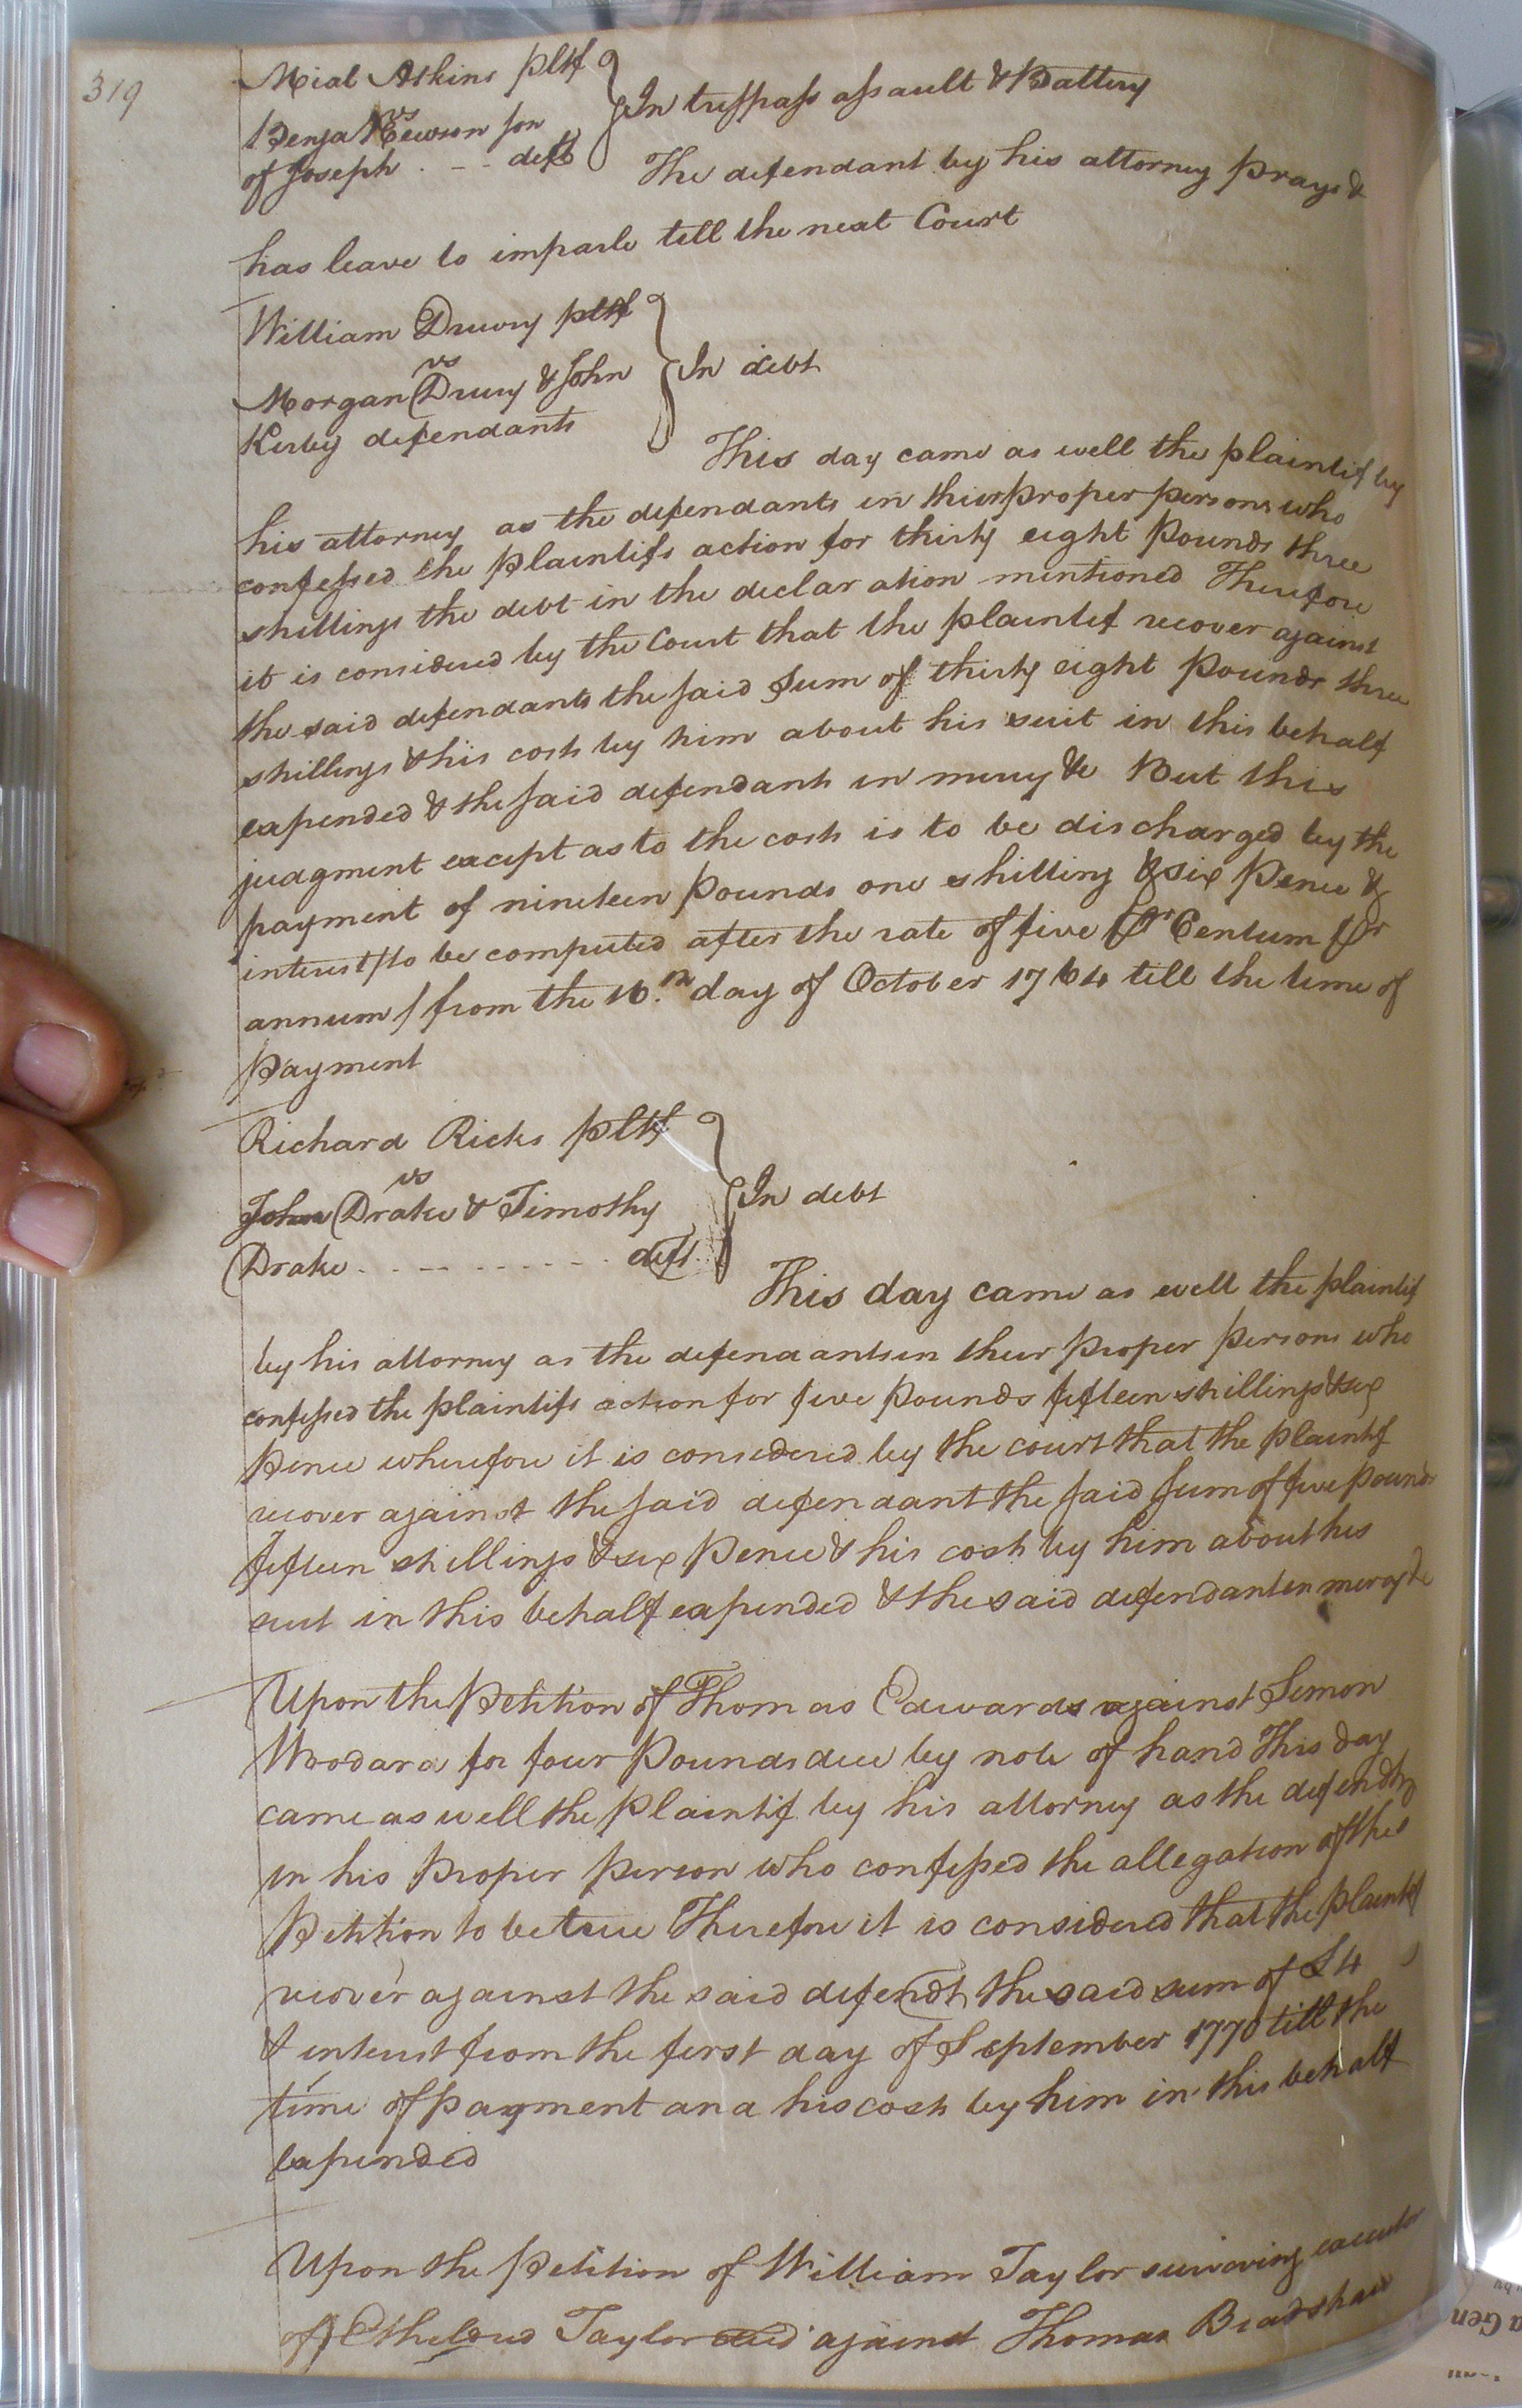 319
Mial Atkins pltf
vs
Benja Newson son
of Joseph . - - deft
In trespass assault & Battery
The defendant by his attorney prays &
has leave to imparle till the next Court
William Drury pltf
vs
Morgan Drury & John
Kerby defendants
In debt
This day came as well the plaintif by
his attorney as the defendants in thier proper persons who
confessed the plaintifs action for thirty eight Pounds three
shillings the debt in the declaration mentioned Therefore
it is considered by the Court that the plaintif recover against
the said defendants the said Sum of thirty eight Pounds three
shillings & his costs by him about his suit in this behalf
expended & the said defendants in mercy &c But this
judgment except as to the costs is to be discharged by the
payment of nineteen Pounds one shilling & six Pence &
interest / to be computed after the rate of five Pr Centum Pr
annum / from the 16.th day of October 1764 till the time of
Payment
Richard Ricks pltf
vs
John Drake & Timothy
Drake - - - - - - - deft
In debt
This day came as well the plaintif
by his attorney as the defendants in their proper persons who
confessed the plaintifs action for five Pounds fifteen shillings & six
Pence wherefore it is considered by the court that the plaintif
recover against the said defendant the said Sum of five pounds
fifteen shillings & six Pence & his costs by him about his
suit in this behalf expended & the said defendant in mercy &c
Upon the Petition of Thomas Edwards against Simon
Woodard for four Pounds due by note of hand This day
came as well the plaintif by his attorney as the defendt
in his proper person who confessed the allegation of the
Petition to be true Therefore it is considered that the plaintif
recover against the said defendt the said sum of £4
& interest from the first day of September 1770 till the
time of payment and his costs by him in this behalf
Expended
Upon the Petition of William Taylor surviving executor
of Etheldred Taylor decd against Thomas Bradshaw